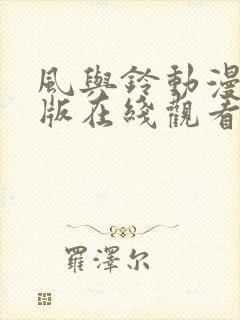 風與鈴動漫
版在綫觀看
羅澤尔